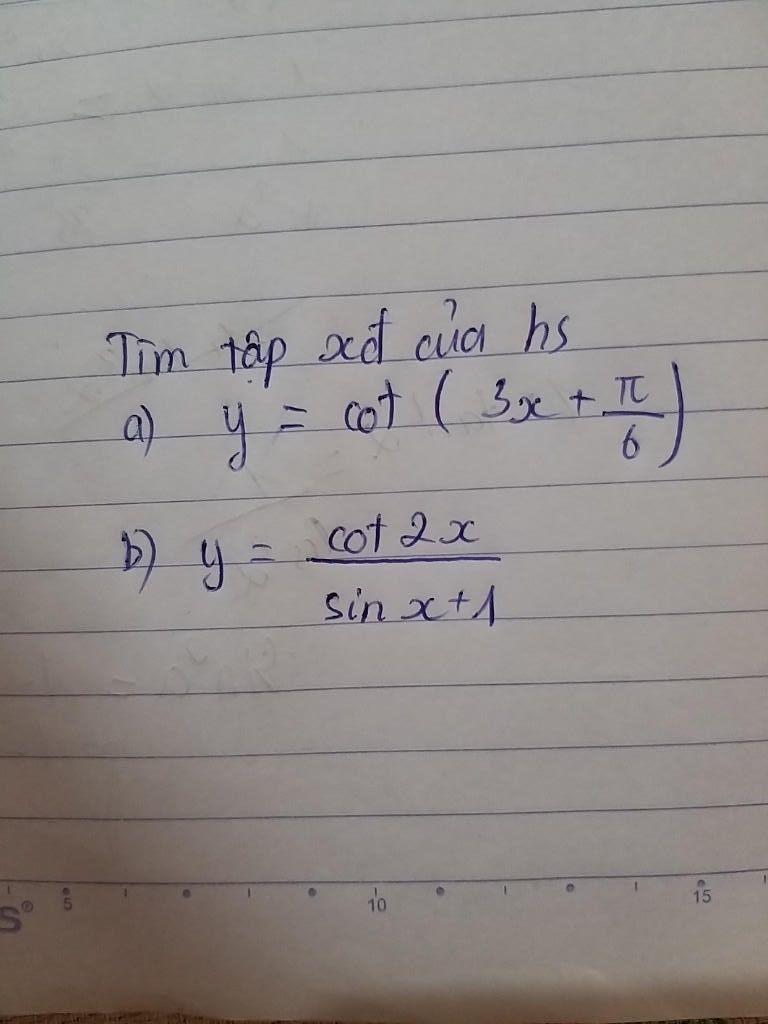 Tìm tập xđ của hs
a) y = cot ( 3x + π/6 )
b) y = cot 2x / sin x + 1
S® 5 10 15